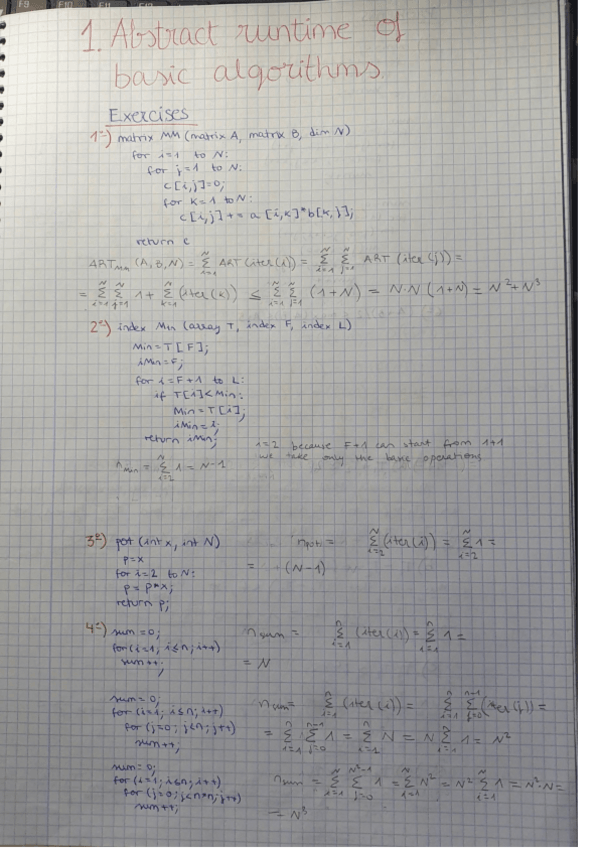 F9 F10 F11
1. Abstract runtime of
basic algorithms
Exercises
1º) matrix MM (matrix A, matrix B, dim N)
for i=1 to N:
for j=1 to N:
c[i,j]=0;
for k=1 to N:
c[i,j] += a[i,k]*b[k,j];
return c
ART_MM (A,B,N) = Σ_{i=1}^{N} ART (iter(i)) = Σ_{i=1}^{N} Σ_{j=1}^{N} ART (iter(j)) =
= Σ_{i=1}^{N} Σ_{j=1}^{N} 1 + Σ_{k=1}^{N} (iter(k)) ≤ Σ_{i=1}^{N} Σ_{j=1}^{N} (1+N) = N·N (1+N) = N²+N³
2º) index Min (array T, index F, index L)
Min = T[F];
iMin = F;
for i=F+1 to L:
if T[i]<Min:
Min = T[i];
iMin = i;
return iMin;
i=2 because F+1 can start from 1+1
we take only the basic operations
n_Min = Σ_{i=2}^{N} 1 = N-1
3º) pot (int x, int N)
p=x
for i=2 to N:
p = p*x;
return p;
n_pot = Σ_{i=2}^{N} (iter(i)) = Σ_{i=2}^{N} 1 =
= (N-1)
4º) sum = 0;
for(i=1; i≤n; i++)
sum++;
n_sum = Σ_{i=1}^{N} (iter(i)) = Σ_{i=1}^{n} 1 =
= N
sum = 0;
for (i=1; i≤n; i++)
for (j=0; j<n; j++)
sum++;
n_sum = Σ_{i=1}^{n} (iter(i)) = Σ_{i=1}^{n} Σ_{j=0}^{n-1} (iter(j)) =
= Σ_{i=1}^{n} Σ_{j=0}^{n-1} 1 = Σ_{i=1}^{n} N = N Σ_{i=1}^{n} 1 = N²
sum = 0;
for (i=1; i≤n; i++)
for (j=0; j<n*n; j++)
sum++;
n_sum = Σ_{i=1}^{N} Σ_{j=0}^{N²-1} 1 = Σ_{i=1}^{N} N² = N² Σ_{i=1}^{N} 1 = N²·N =
= N³